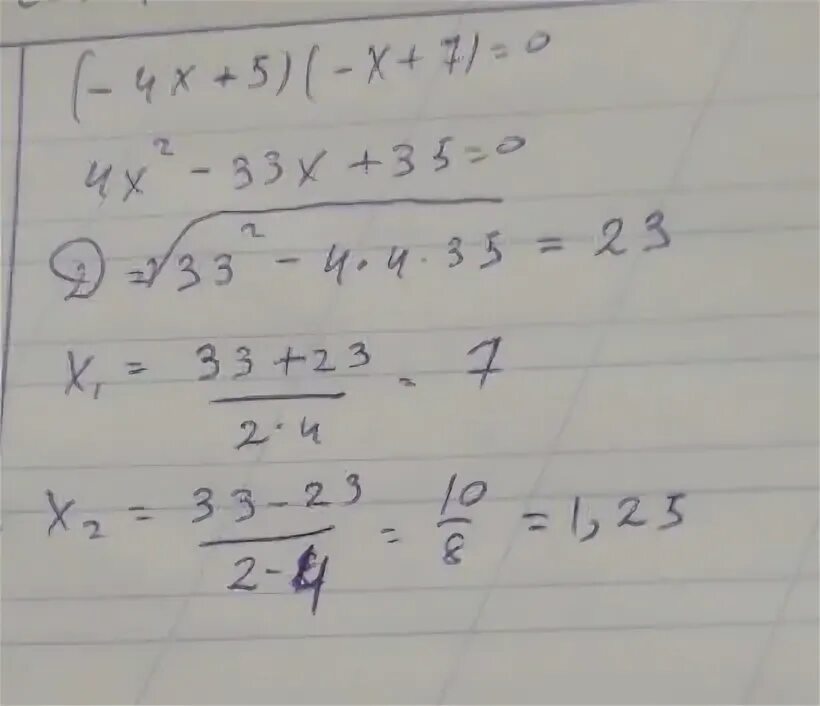 (-4x+5)(-x+7)=0
4x²-33x+35=0
D=√33²-4·4·35=23
x₁=33+23/2·4=7
x₂=33-23/2-4=10/8=1,25